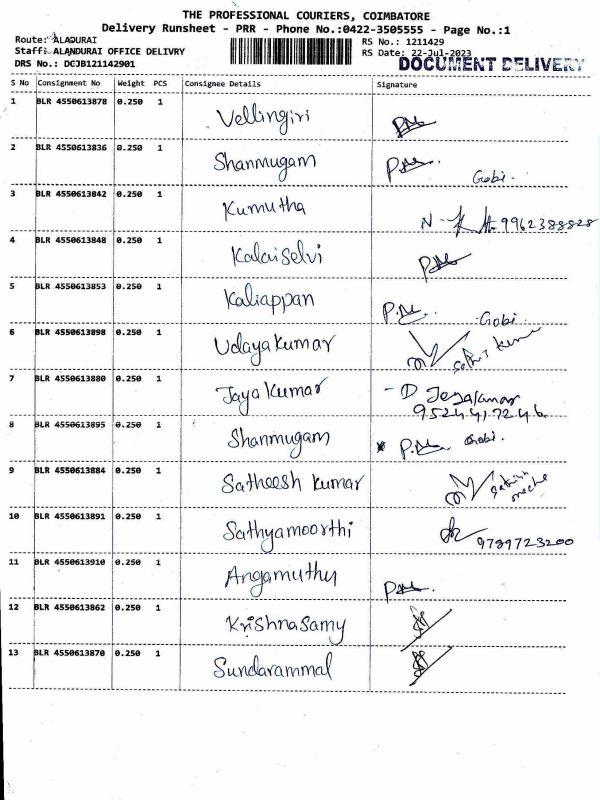 THE PROFESSIONAL COURIERS, COIMBATORE
Delivery Runsheet - PRR - Phone No.:0422-3505555 - Page No.:1
Route: ALADURAI
RS No.: 1211429
Staff: ALANDURAI OFFICE DELIVRY
RS Date: 22-Jul-2023
DOCUMENT DELIVERY
DRS No.: DCJB121142901
S No Consignment No Weight PCS Consignee Details Signature
1 BLR 4550613878 0.250 1 Vellingiri
2 BLR 4550613836 0.250 1 Shanmugam Gobi.
3 BLR 4550613842 0.250 1 Kumutha 9962388828
4 BLR 4550613848 0.250 1 Kalaiselvi
5 BLR 4550613853 0.250 1 Kaliappan Gobi.
6 BLR 4550613898 0.250 1 Udayakumar
7 BLR 4550613880 0.250 1 Jayakumar - D Jeyakumar
9524417246
8 BLR 4550613895 0.250 1 Shanmugam Gobi.
9 BLR 4550613884 0.250 1 Satheesh kumar
10 BLR 4550613891 0.250 1 Sathyamoorthi 9789723200
11 BLR 4550613910 0.250 1 Angamuthu
12 BLR 4550613862 0.250 1 Krishnasamy
13 BLR 4550613870 0.250 1 Sundarammal